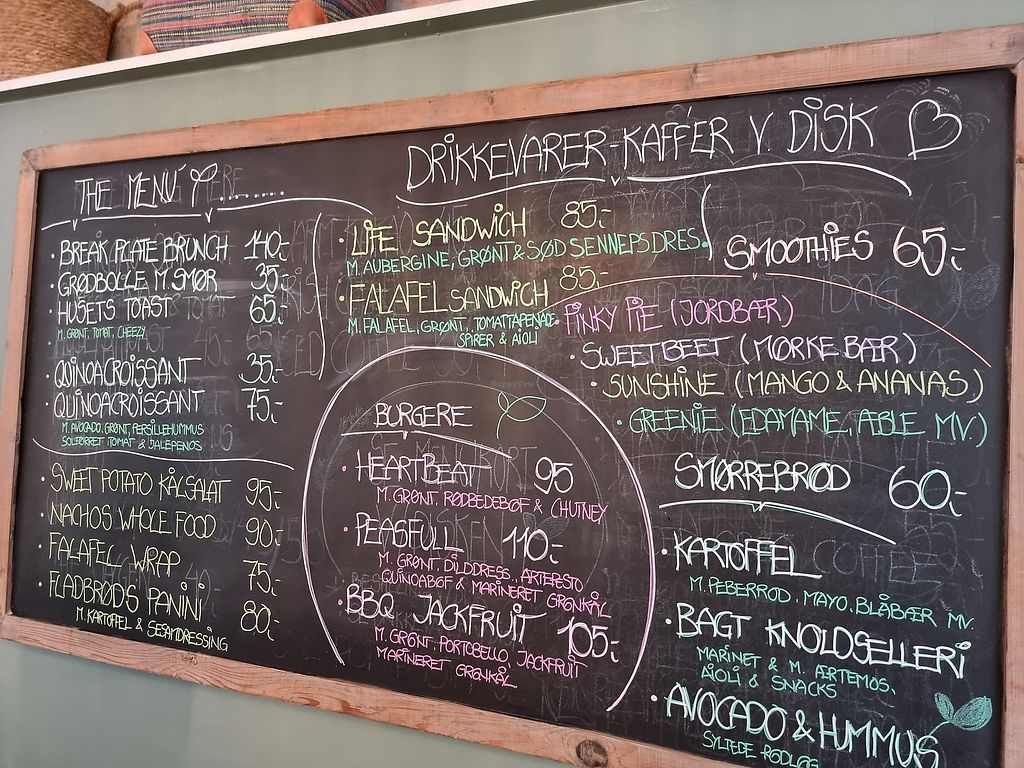 DRIKKEVARER - KAFFÉR V. DISK
THE MENU HERE......
BREAK PLATE BRUNCH 140,-
GRØDBOLLE M. SMØR 35,-
HUSETS TOAST 65,-
M. GRØNT, TOMAT, CHEEZY
QUINOACROISSANT 35,-
QUINOACROISSANT 75,-
M. AVOCADO, GRØNT, PERSILLEHUMMUS
SOLTØRRET TOMAT & JALEPENOS
SWEET POTATO KÅLSALAT 95,-
NACHOS WHOLE FOOD 90,-
FALAFEL WRAP 75,-
FLADBRØDS PANINI 80,-
M. KARTOFFEL & SESAMDRESSING
LIFE SANDWICH 85,-
M. AUBERGINE, GRØNT & SØD SENNEPSDRES.
FALAFEL SANDWICH 85,-
M. FALAFEL, GRØNT, TOMATTAPENADE
SPIRER & AIOLI
BURGERE
HEARTBEAT 95
M. GRØNT, RØDBEDEBØF & CHUTNEY
PEASFULL 110,-
M. GRØNT, DILDDRESS., ÆRTEPESTO
QUINOABØF & MARINERET GRØNKÅL
BBQ JACKFRUIT 105,-
M. GRØNT, PORTOBELLO, JACKFRUIT
MARINERET GRØNKÅL
SMOOTHIES 65,-
PINKY PIE (JORDBÆR)
SWEETBEET (MØRKE BÆR)
SUNSHINE (MANGO & ANANAS)
GREENIE (EDAMAME, ÆBLE MV.)
SMØRREBRØD 60,-
KARTOFFEL
M. PEBERROD, MAYO, BLÅBÆR MV.
BAGT KNOLDSELLERI
MARINET & M. ÆRTEMOS,
AIOLI & SNACKS
AVOCADO & HUMMUS
SYLTEDE RØDLØG
HappyCow